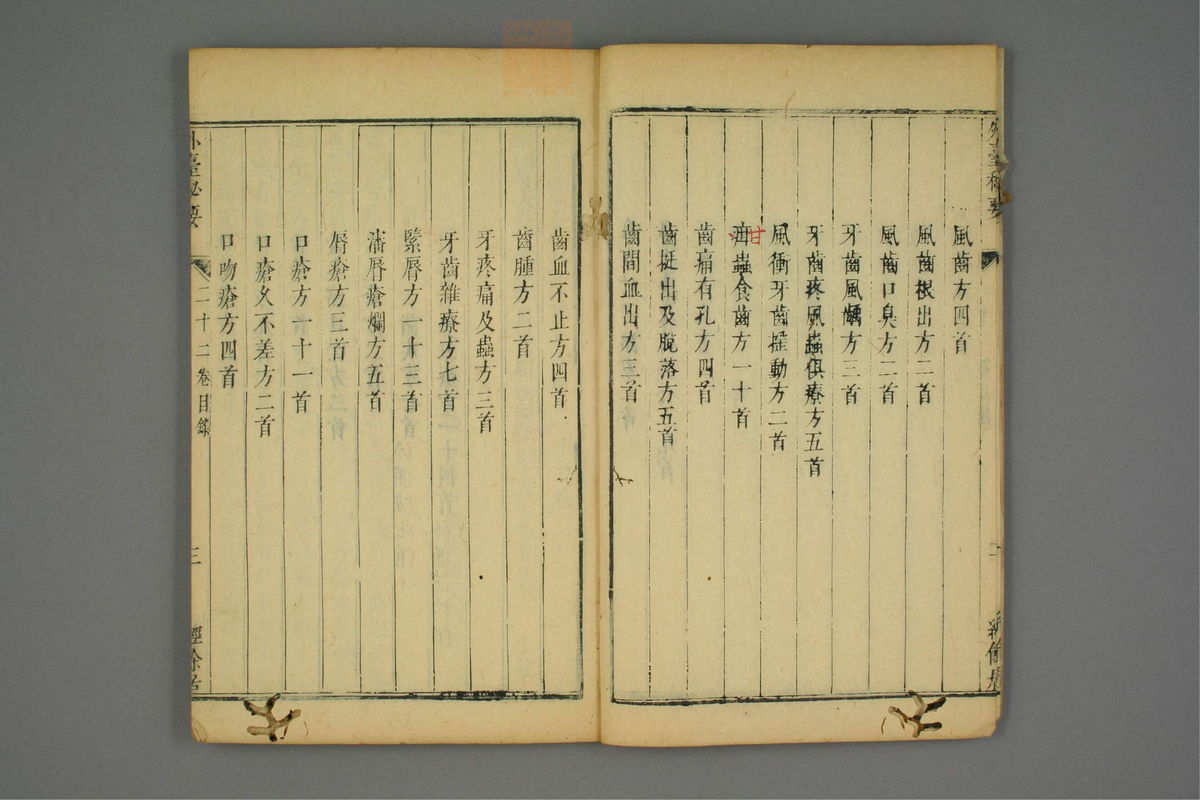 外臺秘要
風齒方四首
風齒根出方二首
風齒口臭方二首
牙齒風齲方三首
牙齒疼風蟲俱療方五首
風衝牙齒搖動方二首
甘
疳蟲食齒方一十首
齒痛有孔方四首
齒挺出及脫落方五首
齒間血出方三首
齒血不止方四首
齒腫方二首
牙疼痛及蟲方三首
牙齒雜療方七首
緊脣方一十三首
瀋脣瘡爛方五首
脣瘡方三首
口瘡方一十一首
口瘡久不差方二首
口吻瘡方四首
外臺秘要
二十二卷目錄
三
經餘居